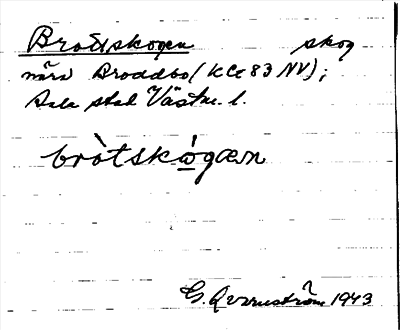 Brottskogen skog
nära Broddbo (KCe83 NV);
Sala stad Västm. l.
bròtskò̲gæn
G. Qvarnström 1943